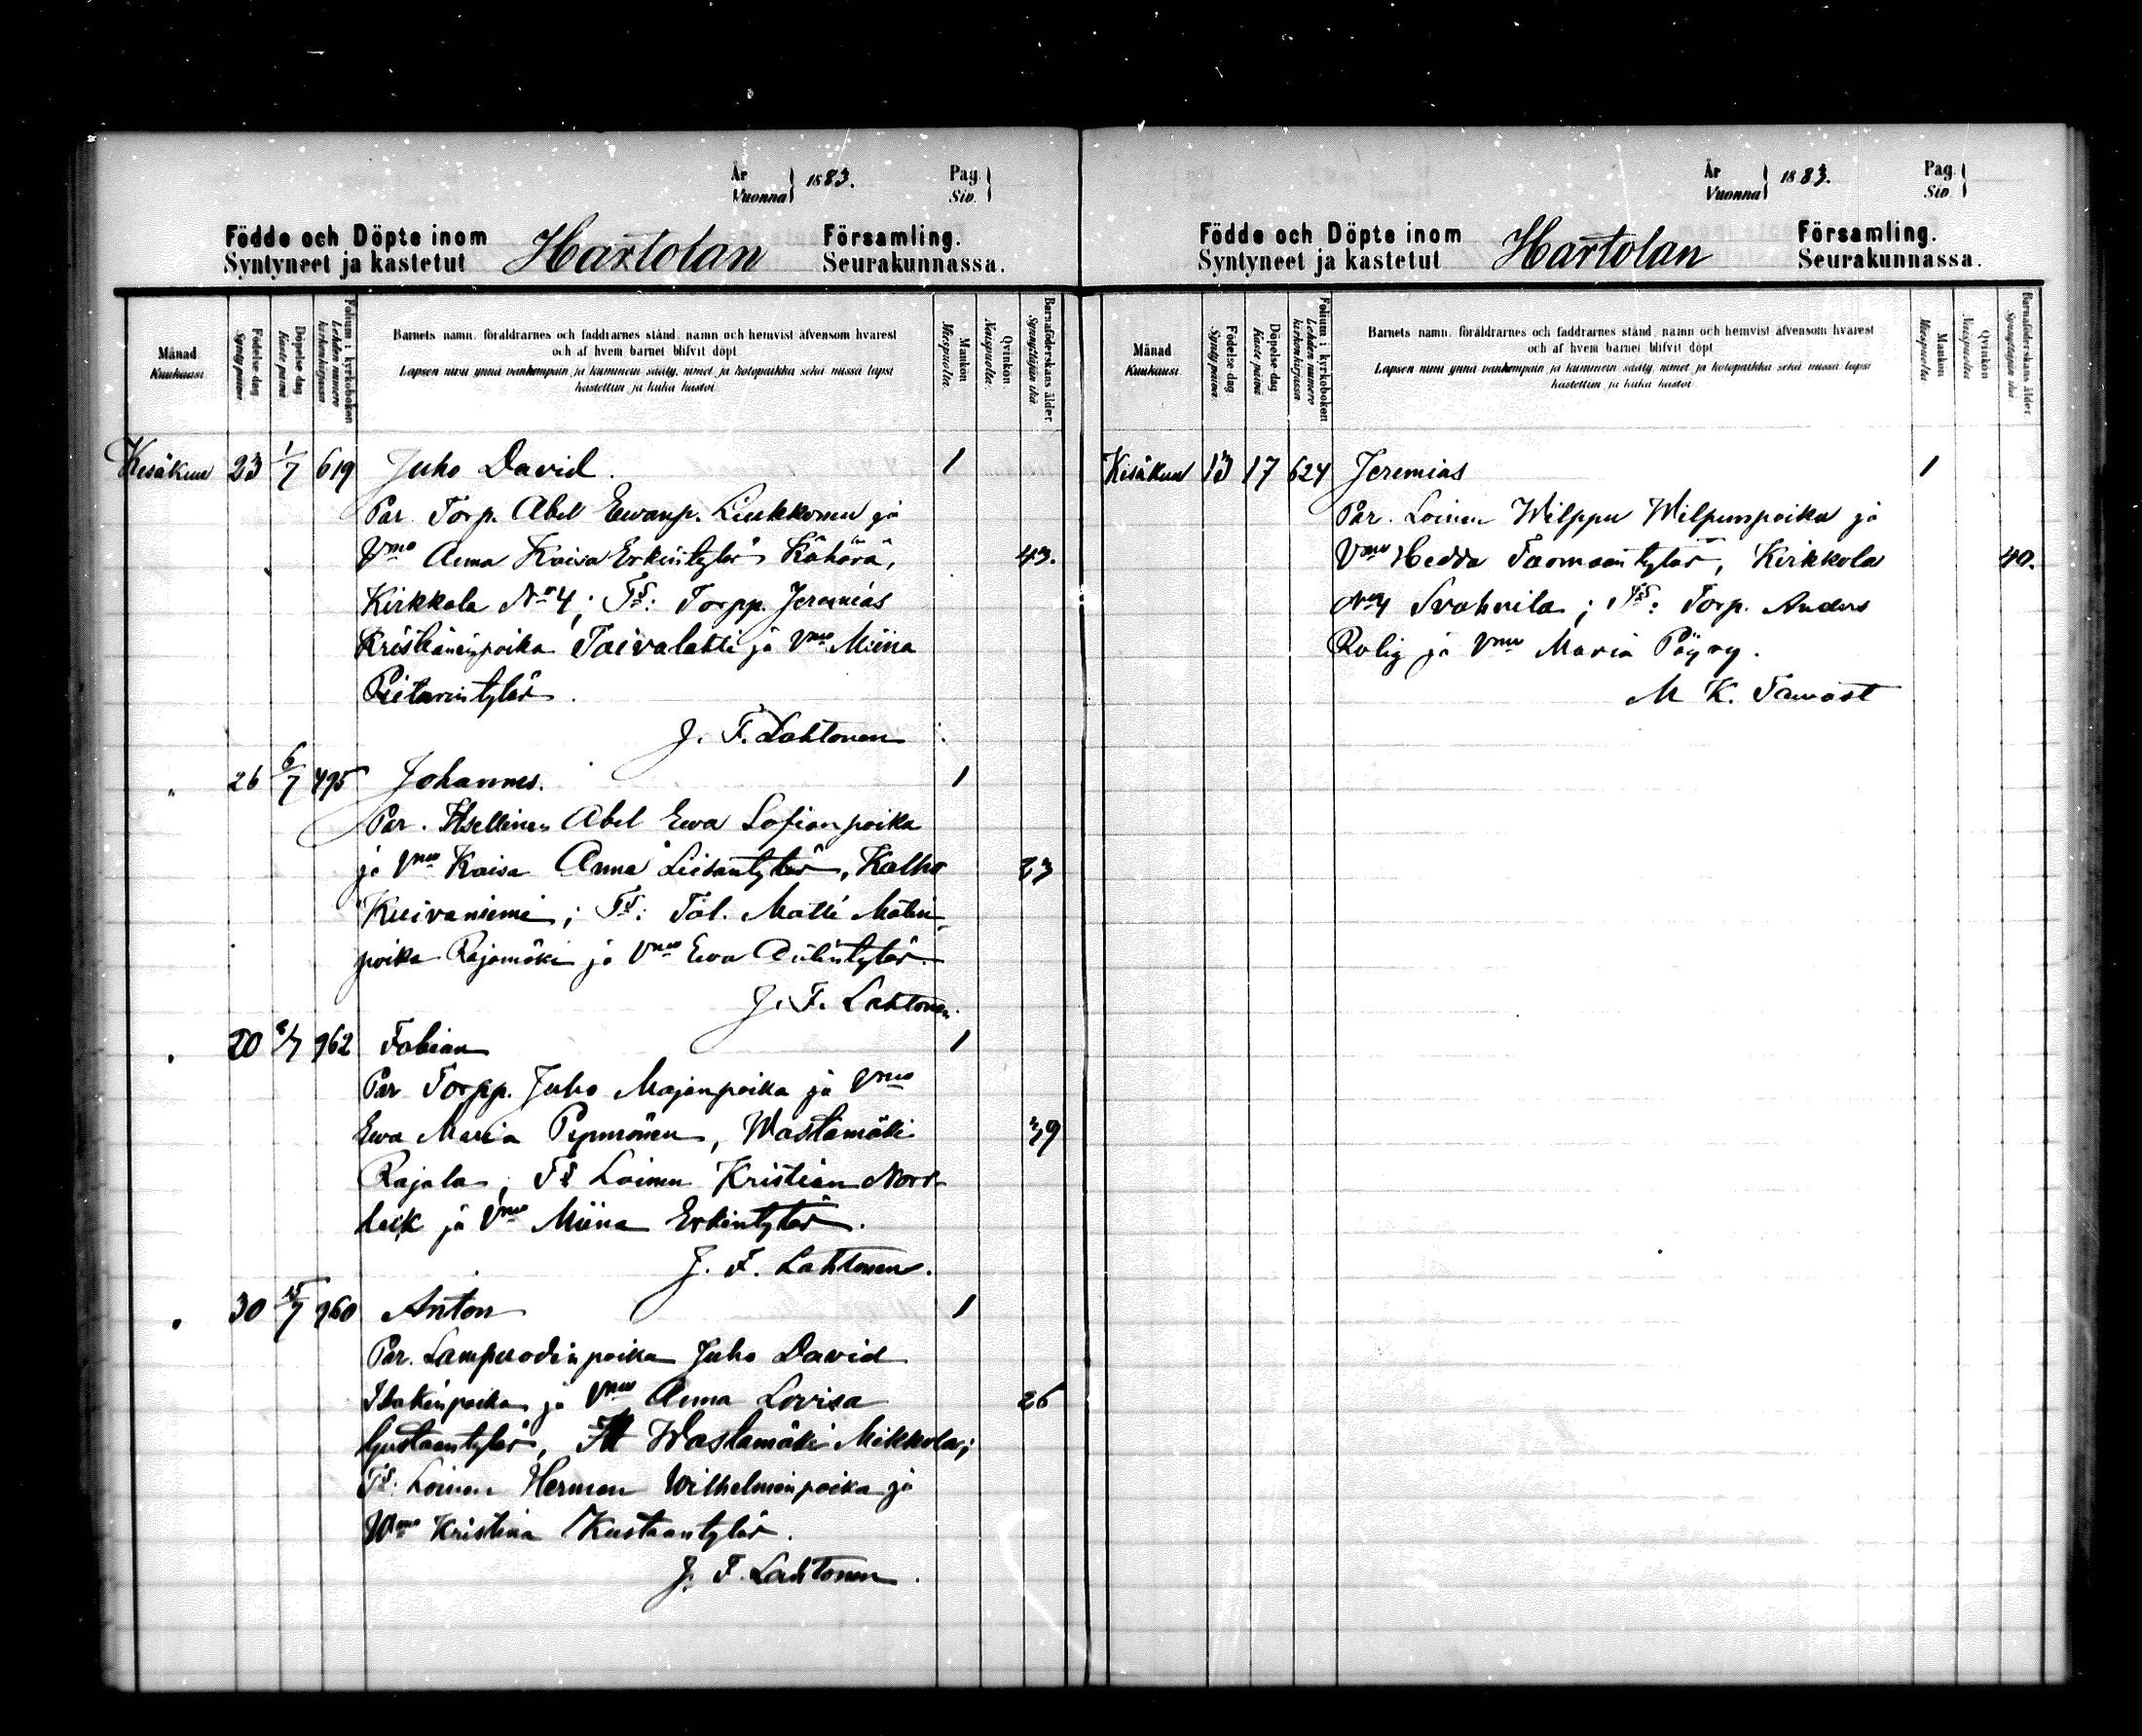 År
Vuonna 1883.
Pag.
Siv.
Födde och Döpte inom
Syntyneet ja kastetut
Hartolan
Församling.
Seurakunnassa.
Månad
Kuukausi
Födelse dag
Synty päivä
Döpelse dag
Kaste päivä
Folium i kyrkoboken
Lehden numero kirkonkirjassa
Barnets namn, föräldrarnes och faddrarnes stånd, namn och hemvist äfvensom hvarest
och af hvem barnet blifvit döpt
Lapsen nimi ynnä vanhempain ja kummein sääty, nimet ja kotopaikka sekä missä lapsi
kastettiin ja kuka kastoi
Mankön
Miespuolia
Qvinkön
Naispuolia
Barnaföderskans ålder
Synnyttäjän ikä
Kesäkuu 23 1/7 619 Juho David. 1
Par. Torp. Abel Ewanp. Liukkonen ja
Vmo Anna Kaisa Erkintytär Kähärä, 43.
Kirkkola No 4; Ts: Torpp. Jeremias
Kristianinpoika Taivalahti ja Vmo Miina
Pietarintytär.
J. F. Lahtonen
" 26 6/7 495 Johannes. 1
Par. Itsellinen Abel Ewa Sofianpoika
ja Vmo Kaisa Anna Liisantytär, Kalho 23
Kuivaniemi; Ts: Tal. Matti Matin
poika Rajamäki ja Vmo Ewa
J. F. Lahtonen.
" 20 8/7 962 Fabian 1
Par Torpp. Juho Majanpoika ja Vmo
Ewa Maria Wastamäki 39
Rajala; Ts Loinen Kristian Nord
ja Vmo Miina Erkintytär.
J. F. Lahtonen.
" 30 15/7 960 Anton 1
Par. Lampuodinpoika Juho David
Isakinpoika ja Vmo Anna Lovisa 26
Gustaantytär, Wastamäki Mikkola;
Ts: Loinen Herman Wilhelminpoika ja
Wmo Kristina Kustaantytär.
J. F. Lahtonen.
År
Vuonna 1883.
Pag.
Siv.
Födde och Döpte inom
Syntyneet ja kastetut
Hartolan
Församling.
Seurakunnassa.
Månad
Kuukausi
Födelse dag
Synty päivä
Döpelse dag
Kaste päivä
Folium i kyrkoboken
Lehden numero kirkonkirjassa
Barnets namn, föräldrarnes och faddrarnes stånd, namn och hemvist äfvensom hvarest
och af hvem barnet blifvit döpt
Lapsen nimi ynnä vanhempain ja kummein sääty, nimet ja kotopaikka sekä missä lapsi
kastettiin ja kuka kastoi
Mankön
Miespuolia
Qvinkön
Naispuolia
Barnaföderskans ålder
Synnyttäjän ikä
Kesäkuu 13 17 624 Jeremias 1
Par. Loinen Wilppu Wilpunpoika ja
Vmo Hedda Taomaantytär, Kirkkola 40.
No 4 Svahnila; Ts: Torp. Anders
Rolig ja Vmo Maria Pöyry.
M K. Tawast